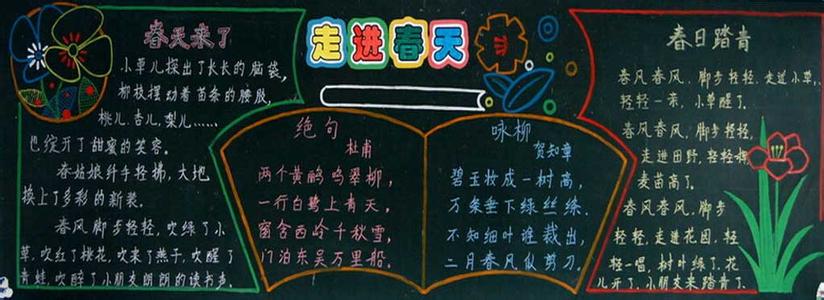 走进春天
春天来了
小草儿探出了长长的脑袋,
柳枝摆动着苗条的腰肢,
桃儿、杏儿、梨儿……
也绽开了甜蜜的笑容。
春姑娘纤手轻梯,大地
换上了多彩的新装。
春风脚步轻轻,吹绿了小
草,吹红了桃花,吹来了燕子,吹醒了
青蛙,吹醉了小朋友朗朗的读书声。
绝句
杜甫
两个黄鹂鸣翠柳,
一行白鹭上青天,
窗含西岭千秋雪,
门泊东吴万里船。
咏柳
贺知章
碧玉妆成一树高,
万条垂下绿丝绦.
不知细叶谁裁出,
二月春风似剪刀.
春日踏青
春风春风,脚步轻轻.走进小草,
轻轻一亲,小草醒了.
春风春风,脚步轻轻,
走进田野,轻轻一
麦苗高了.
春风春风,脚步
轻轻,走进花园,轻
轻一唱,树叶绿了.花
儿开了.小朋友来踏青了.